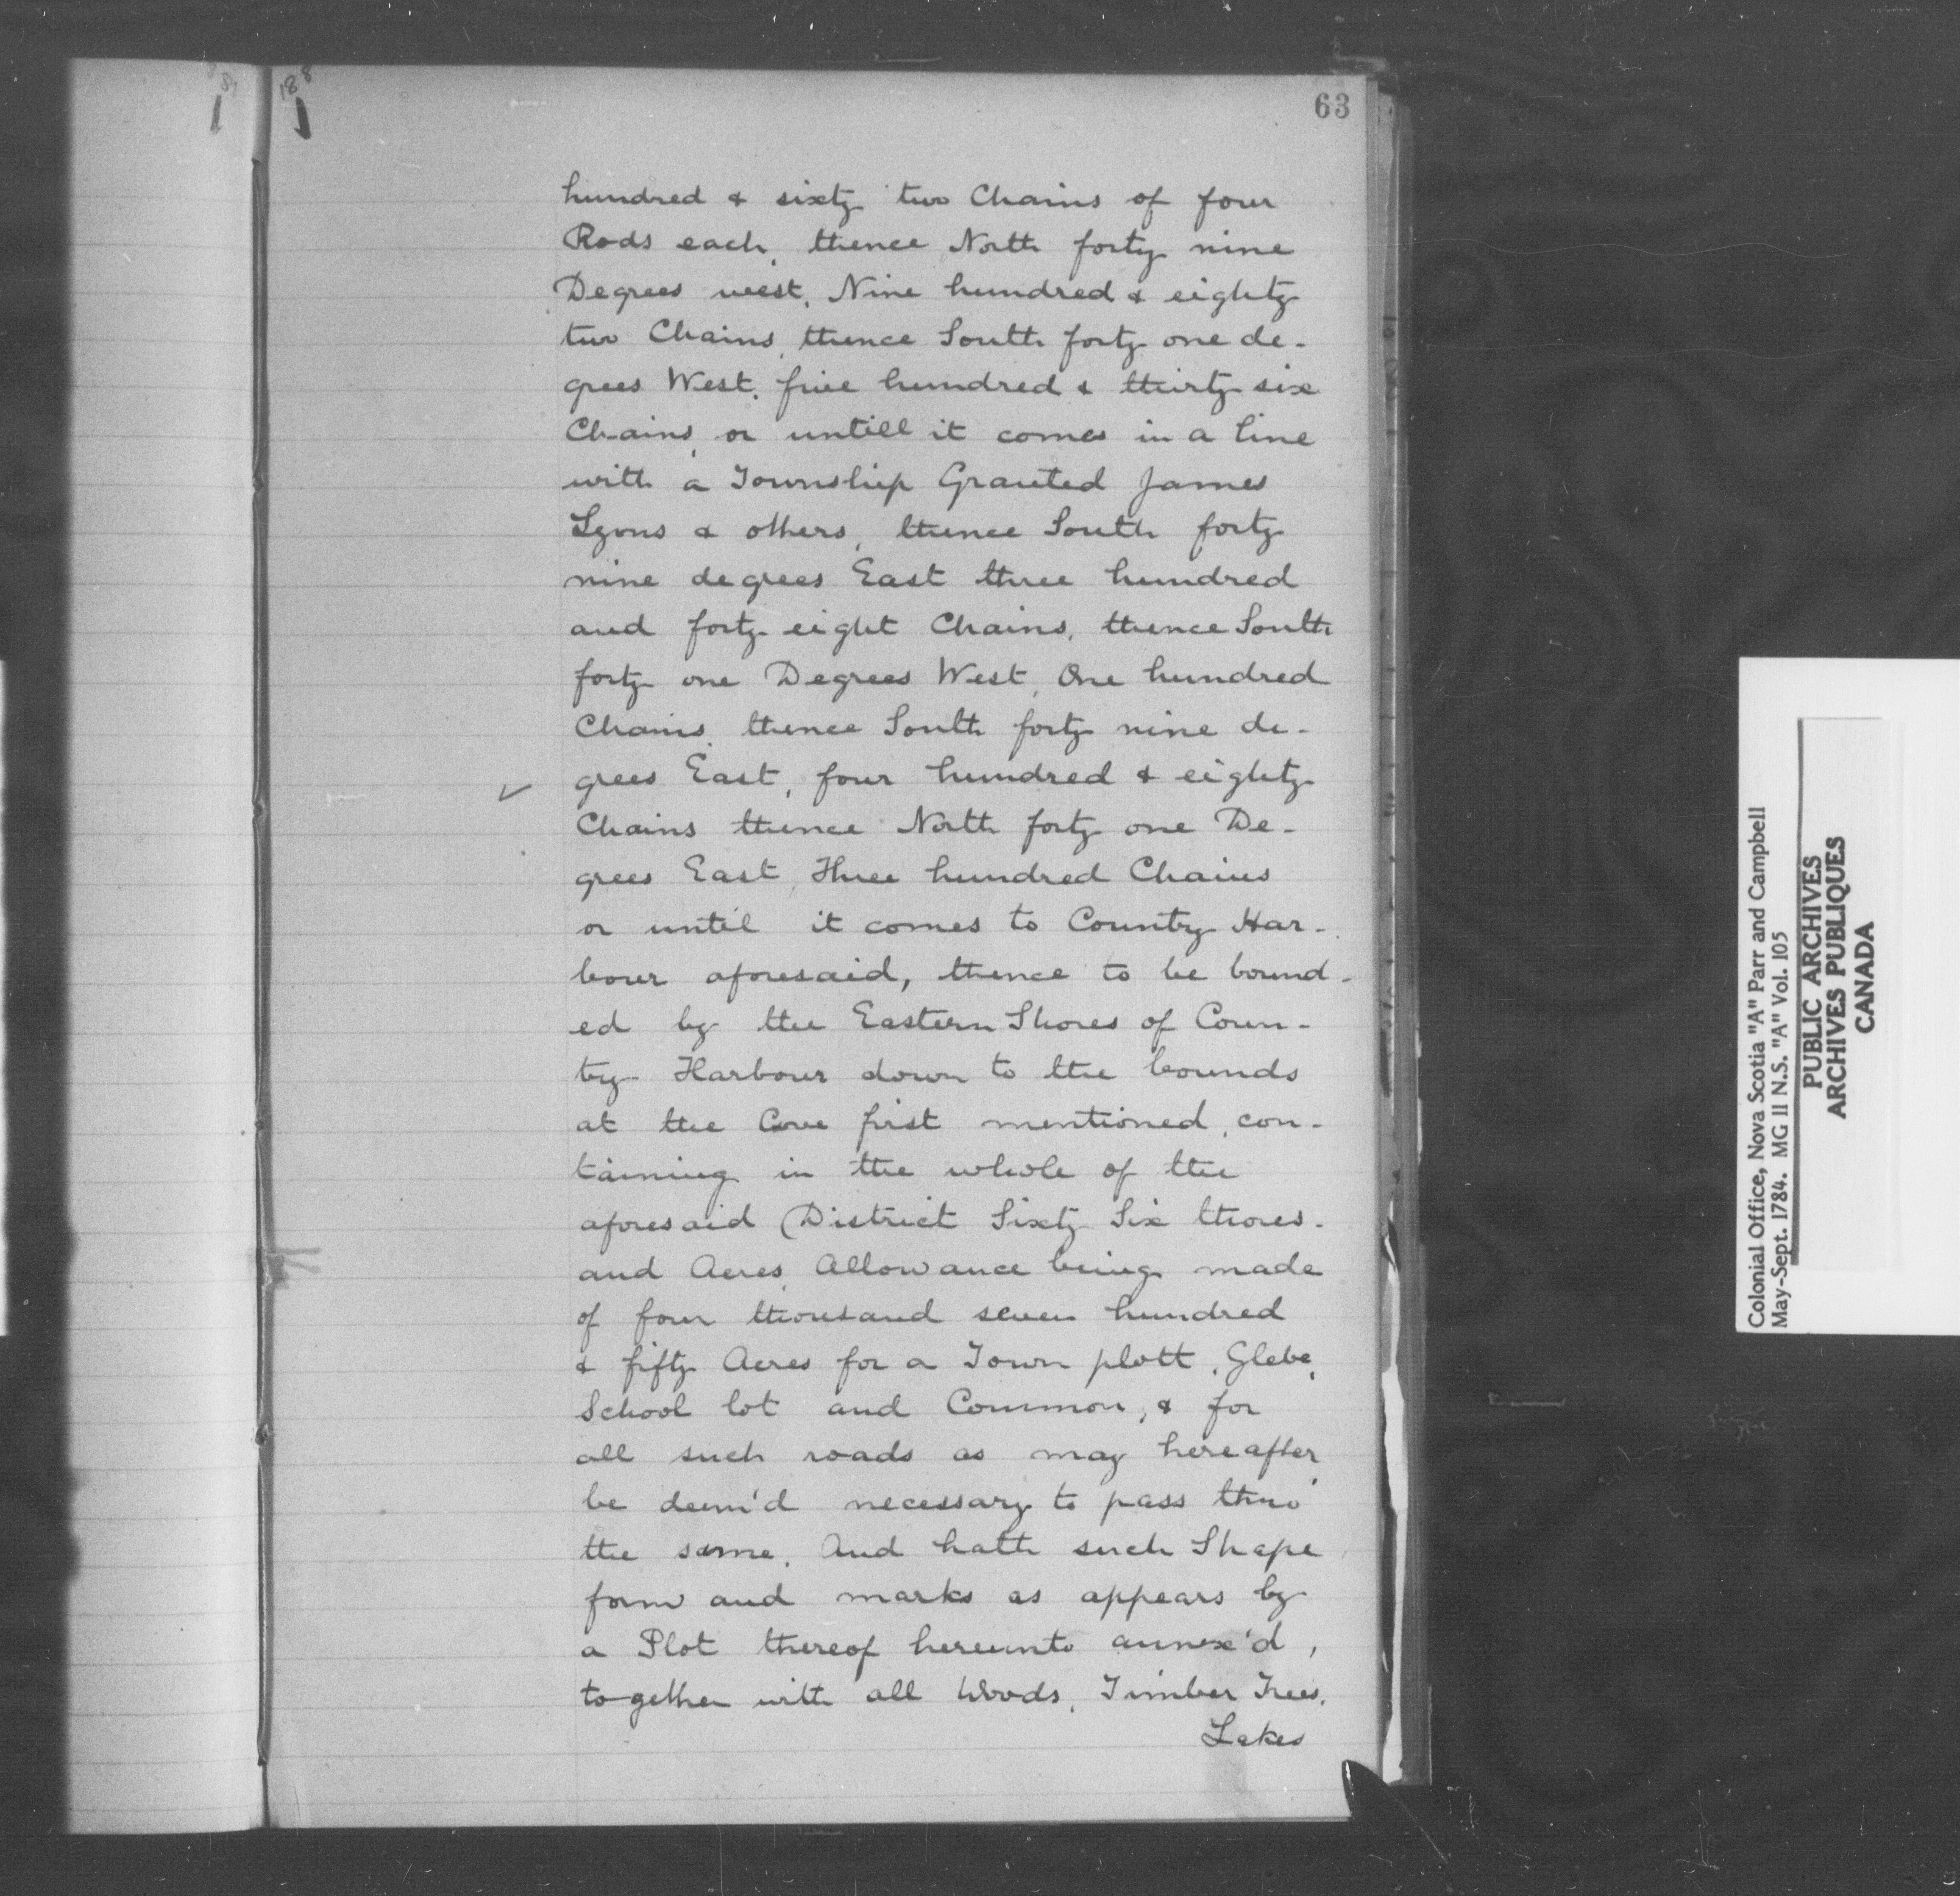 188
63
hundred & sixty two Chains of four
Rods each, thence North forty nine
Degrees west, Nine hundred & eighty
two Chains, thence South forty one de-
grees West, five hundred & thirty six
Chains, or untill it comes in a line
with a Township Granted James
Lyons & others, thence South forty
nine degrees East three hundred
and forty eight Chains, thence South
forty one Degrees West, One hundred
Chains, thence South forty nine de-
grees East, four hundred & eighty
Chains thence North forty one De-
grees East, Three hundred Chains
or until it comes to County Har-
bour aforesaid, thence to be bound-
ed by the Eastern Shores of Coun-
ty Harbour down to the bounds
at the Cove first mentioned, con-
taining in the whole of the
aforesaid District Sixty Six thous-
and Acres, Allowance being made
of four thousand seven hundred
& fifty Acres for a Town plott, Glebe,
School lot and Common, & for
all such roads as may hereafter
be deem'd necessary to pass thro'
the same. And hath such Shape
form and marks as appears by
a Plot thereof hereunto annex'd,
together with all Woods, Timber Trees,
Lakes
Colonial Office, Nova Scotia "A" Parr and Campbell
May-Sept. 1784. MG 11 N.S. "A" Vol. 105
PUBLIC ARCHIVES
ARCHIVES PUBLIQUES
CANADA